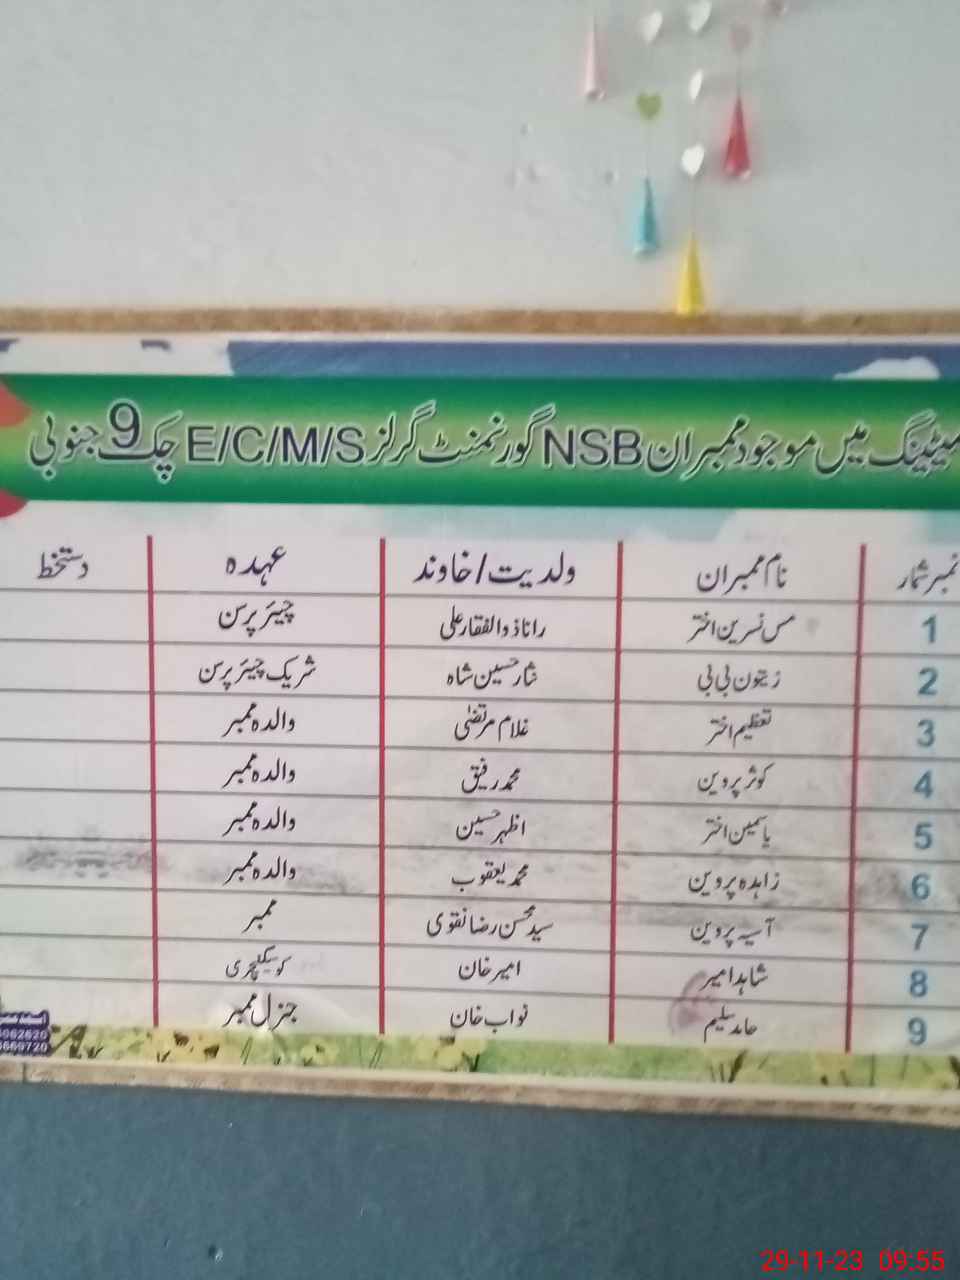 میٹنگ میں موجود ممبران NSB گورنمنٹ گرلز E/C/M/S چک 9 جنوبی
نمبر شمار نام ممبران ولدیت/خاوند عہدہ دستخط
1 مس نسرین اختر رانا ذوالفقار علی چیئر پرسن
2 زیتون بی بی نثار حسین شاہ شریک چیئر پرسن
3 تعظیم اختر غلام مرتضیٰ والدہ ممبر
4 کوثر پروین محمد رفیق والدہ ممبر
5 یاسمین اختر اظہر حسین والدہ ممبر
6 زاہدہ پروین محمد یعقوب والدہ ممبر
7 آسیہ پروین سید محسن رضا نقوی ممبر
8 شاہد امیر امیر خان
9 حامد سلیم نواب خان جنرل ممبر
29-11-23 09:55